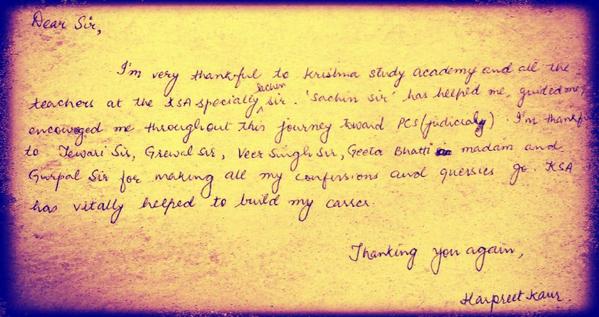 Dear Sir,
I'm very thankful to Krishna study academy and all the
teachers at the KSA specially sachin sir. 'Sachin sir' has helped me, guided me,
encouraged me throughout this journey toward PCS (judiciary). I'm thankful
to Tewari Sir, Grewal Sir, Veer Singh Sir, Geeta Bhatti madam and
Gurpal Sir for making all my confussions and querries go. KSA
has vitally helped to build my career.
Thanking you again,
Harpreet Kaur.